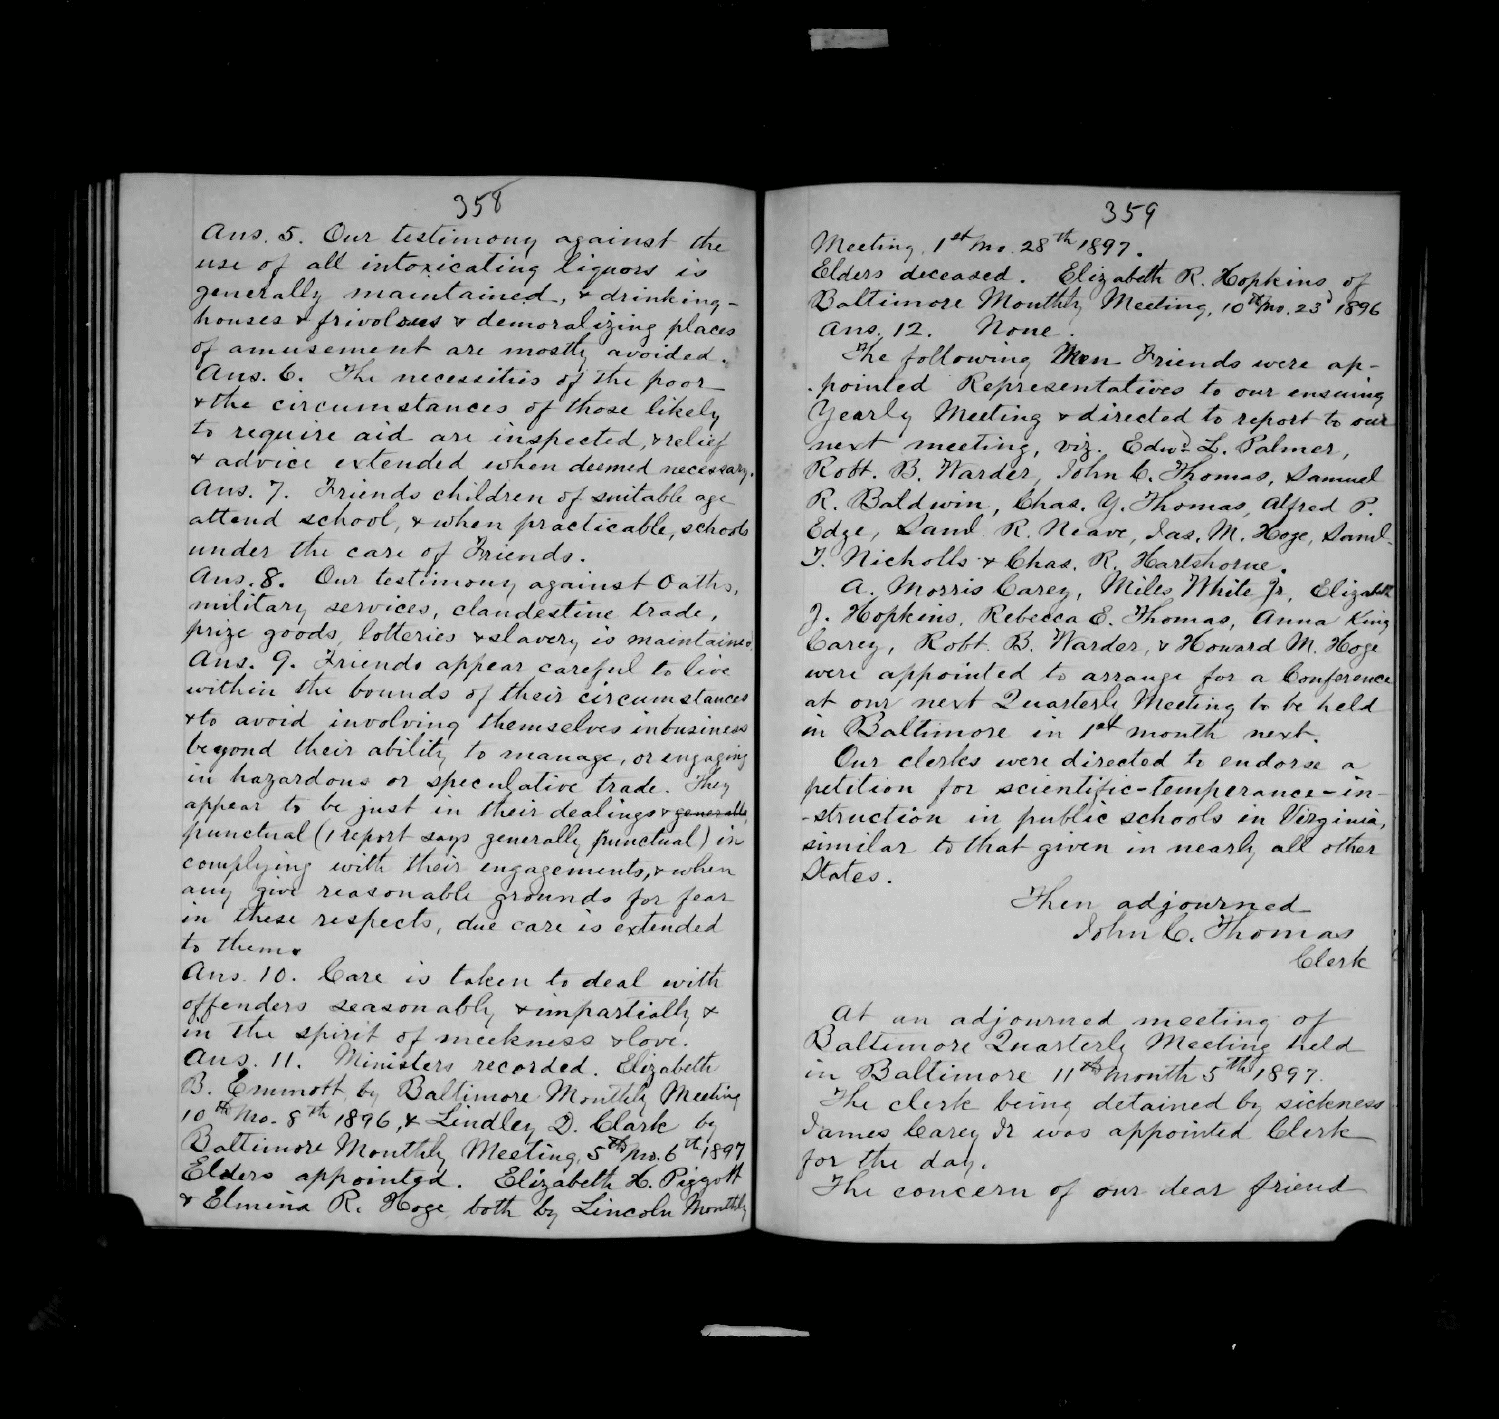 358
Ans. 5. Our testimony against the
use of all intoxicating liquors is
generally maintained, & drinking-
houses & frivolous & demoralizing places
of amusement are mostly avoided.
Ans. 6. The necessities of the poor
& the circumstances of those likely
to require aid are inspected, & relief
& advice extended when deemed necessary.
Ans. 7. Friends children of suitable age
attend school, & when practicable, schools
under the care of Friends.
Ans. 8. Our testimony against Oaths,
military services, clandestine trade,
prize goods, lotteries & slavery is maintained.
Ans. 9. Friends appear careful to live
within the bounds of their circumstances
& to avoid involving themselves in business
beyond their ability to manage, or engaging
in hazardous or speculative trade. They
appear to be just in their dealings & generally
punctual (1 report says generally punctual) in
complying with their engagements, & when
any give reasonable grounds for fear
in these respects, due care is extended
to them.
Ans. 10. Care is taken to deal with
offenders seasonably & impartially &
in the spirit of meekness & love.
Ans. 11. Ministers recorded. Elizabeth
B. Emmott by Baltimore Monthly Meeting
10th Mo. 8th 1896, & Lindley D. Clark by
Baltimore Monthly Meeting, 5th Mo. 6th 1897
Elders appointed. Elizabeth H. Piggott
& Elmina R. Hoge both by Lincoln Monthly
359
Meeting, 1st Mo. 28th 1897.
Elders deceased. Elizabeth R. Hopkins of
Baltimore Monthly Meeting, 10th Mo. 23d 1896
Ans. 12. None.
The following Men Friends were ap-
-pointed Representatives to our ensuing
Yearly Meeting & directed to report to our
next meeting, viz. Edwd. L. Palmer,
Robt. B. Warder, John C. Thomas, Samuel
R. Baldwin, Chas. Y. Thomas, Alfred P.
Edge, Saml. R. Neave, Jas. M. Hoge, Saml.
T. Nicholls & Chas. R. Hartshorne.
A. Morris Carey, Miles White Jr, Elizabeth
J. Hopkins, Rebecca E. Thomas, Anna King
Carey, Robt. B. Warder, & Howard M. Hoge
were appointed to arrange for a Conference
at our next Quarterly Meeting to be held
in Baltimore in 1st month next.
Our clerks were directed to endorse a
petition for scientific-temperance-in-
-struction in public schools in Virginia,
similar to that given in nearly all other
States.
Then adjourned
John C. Thomas
Clerk
At an adjourned meeting of
Baltimore Quarterly Meeting held
in Baltimore 11th month 5th 1897.
The clerk being detained by sickness
James Carey Jr was appointed Clerk
for the day.
The concern of our dear friend